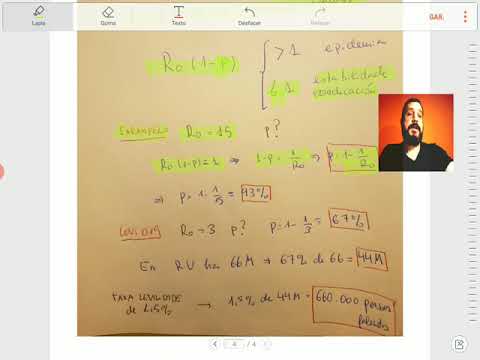 Lapis
Goma
Texto
Desfacer
Refacer
GAR.
R₀ (1-p) { > 1 epidemia
≤ 1 estabilidade erradicación
SARAMPELO R₀ = 15 p?
R₀ (1-p) = 1 ⇒ 1-p = 1/R₀ ⇒ p = 1 - 1/R₀
⇒ p = 1 - 1/15 = 93%
COVID19 R₀ = 3 p? p = 1 - 1/3 = 67%
En RU hai 66M ⇒ 67% de 66 = 44M
TAXA LETALIDADE de 1,5% → 1,5% de 44M = 660.000 persoas
4 / 4